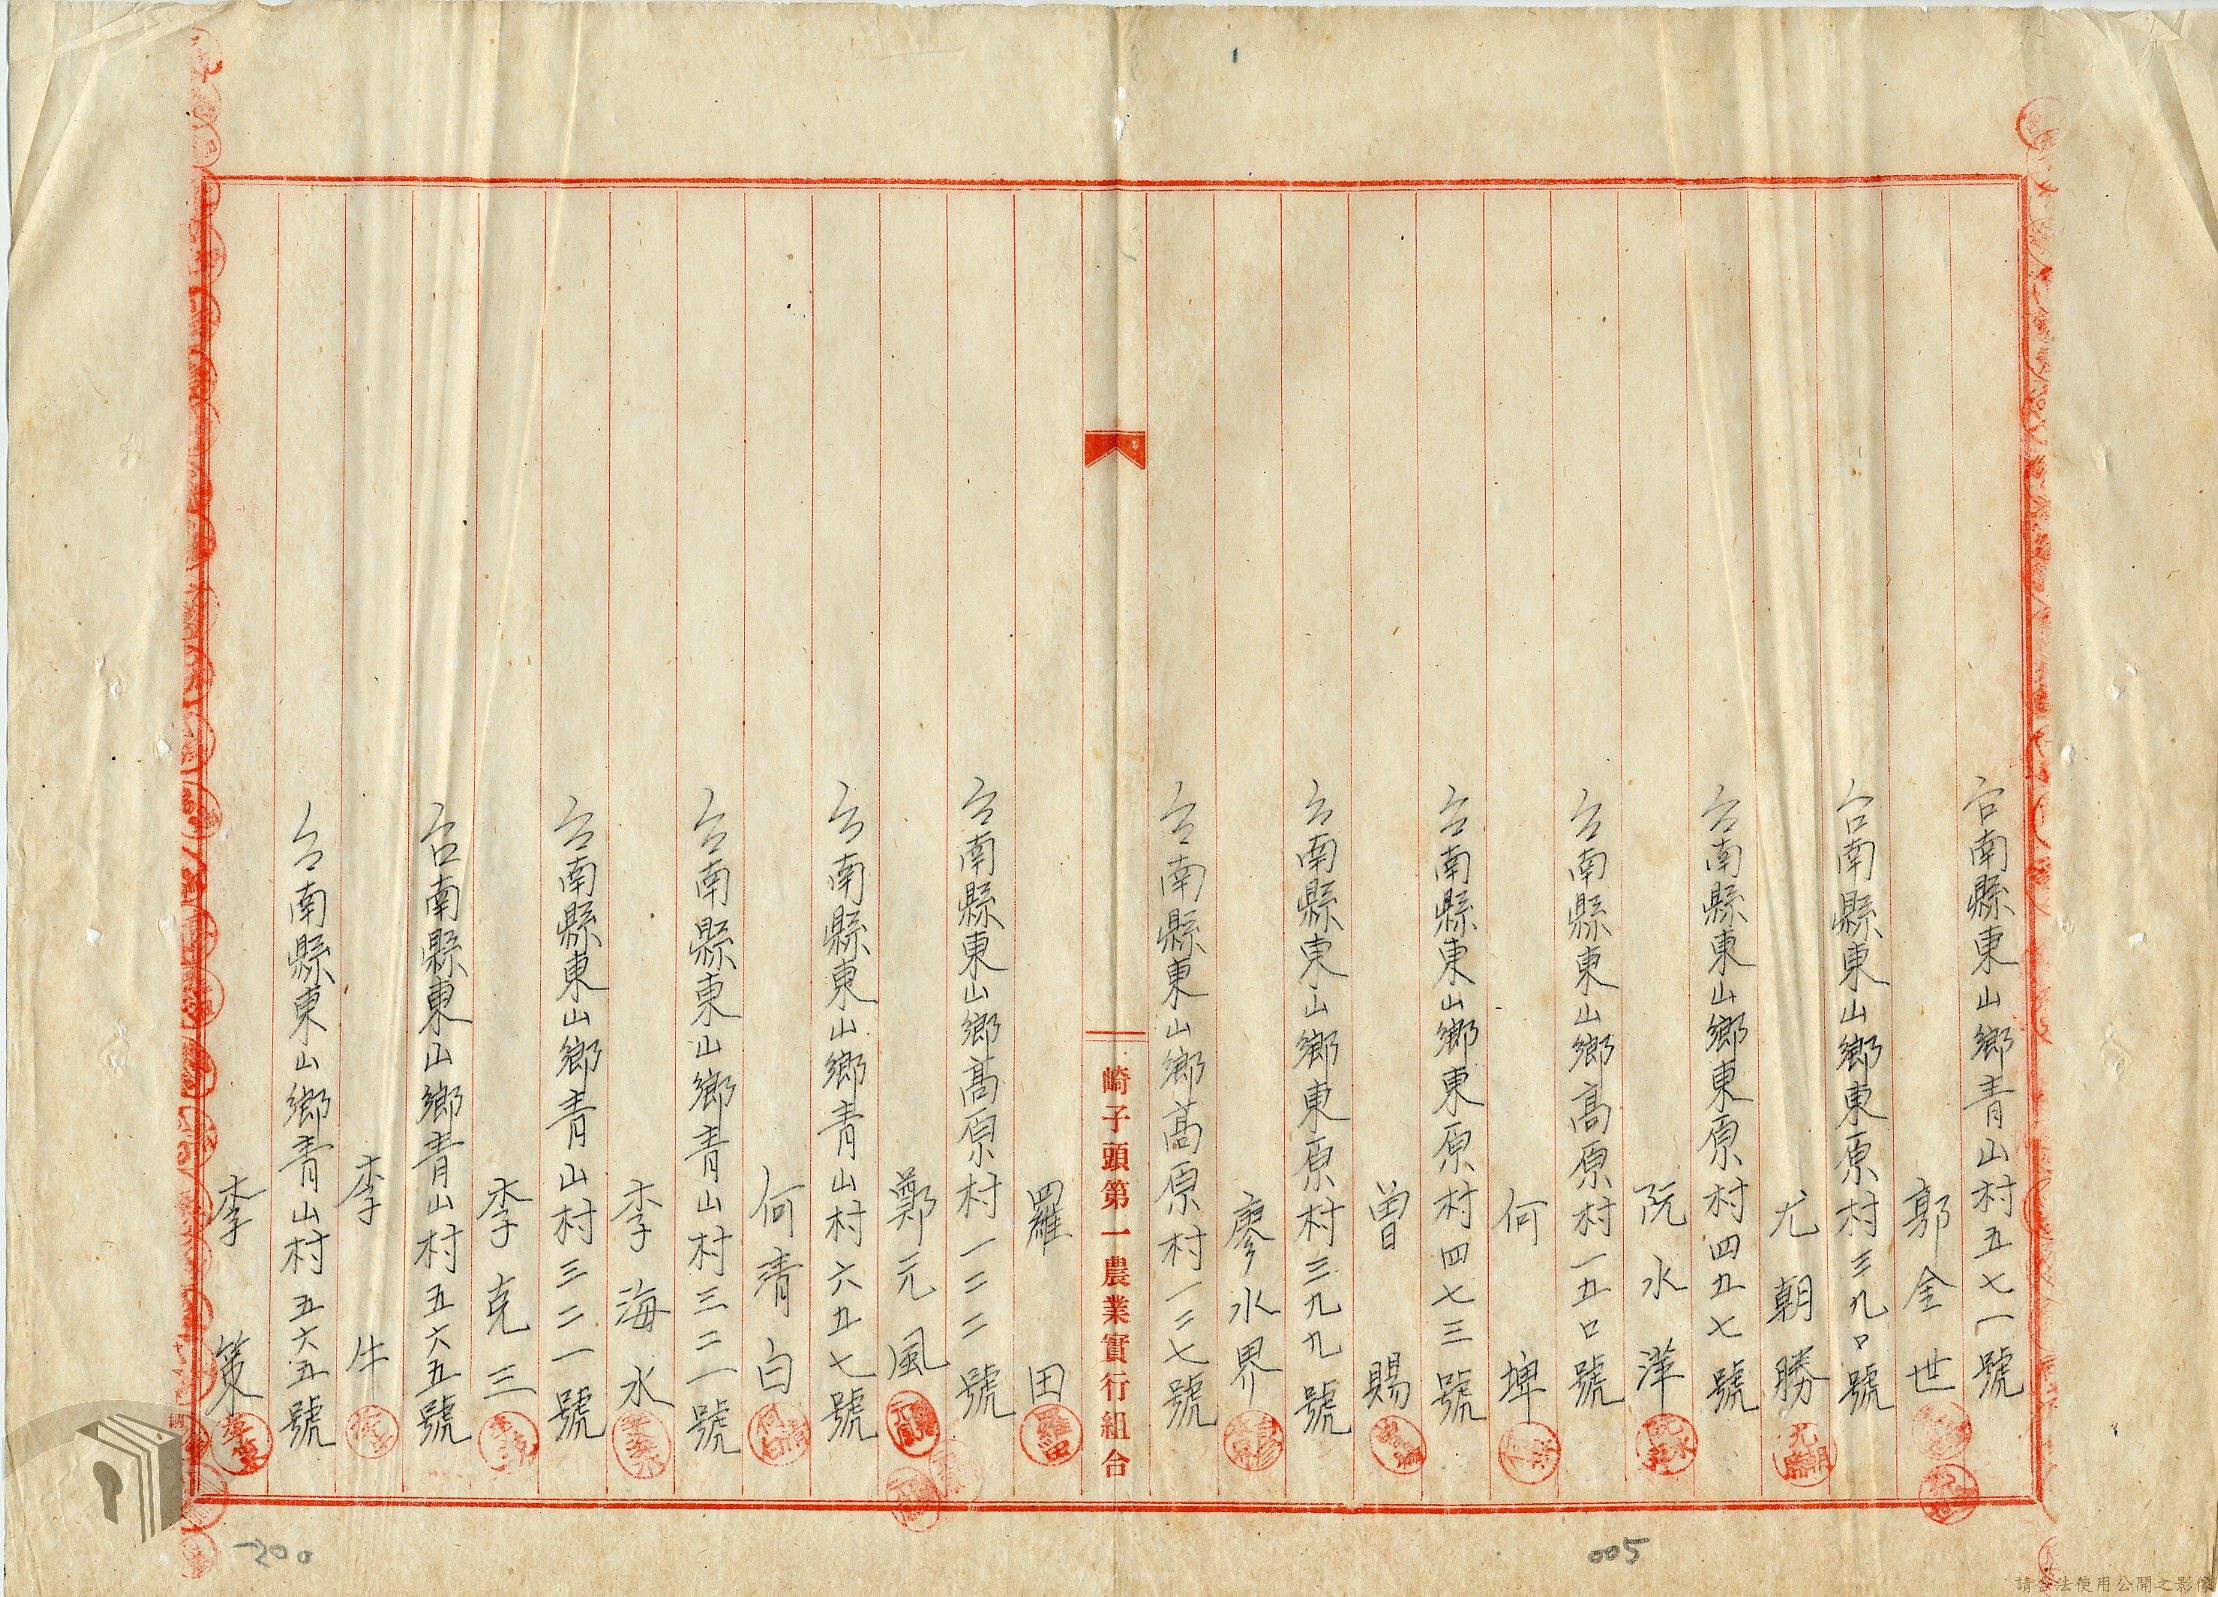 台南縣東山鄉青山村五七一號
郭金世
台南縣東山鄉東原村三九〇號
尤朝勝
台南縣東山鄉東原村四五七號
阮水洋
台南縣東山鄉高原村一五〇號
何埤
台南縣東山鄉東原村四七三號
曾賜
台南縣東山鄉東原村三九九號
廖水界
台南縣東山鄉高原村一二七號
崎子頭第一農業實行組合
羅田
台南縣東山鄉高原村一二二號
鄭元風
台南縣東山鄉青山村六五七號
何清白
台南縣東山鄉青山村三二一號
李海水
台南縣東山鄉青山村三二一號
李克三
台南縣東山鄉青山村五六五號
李牛
台南縣東山鄉青山村五六五號
李策
005
請合法使用公開之影像